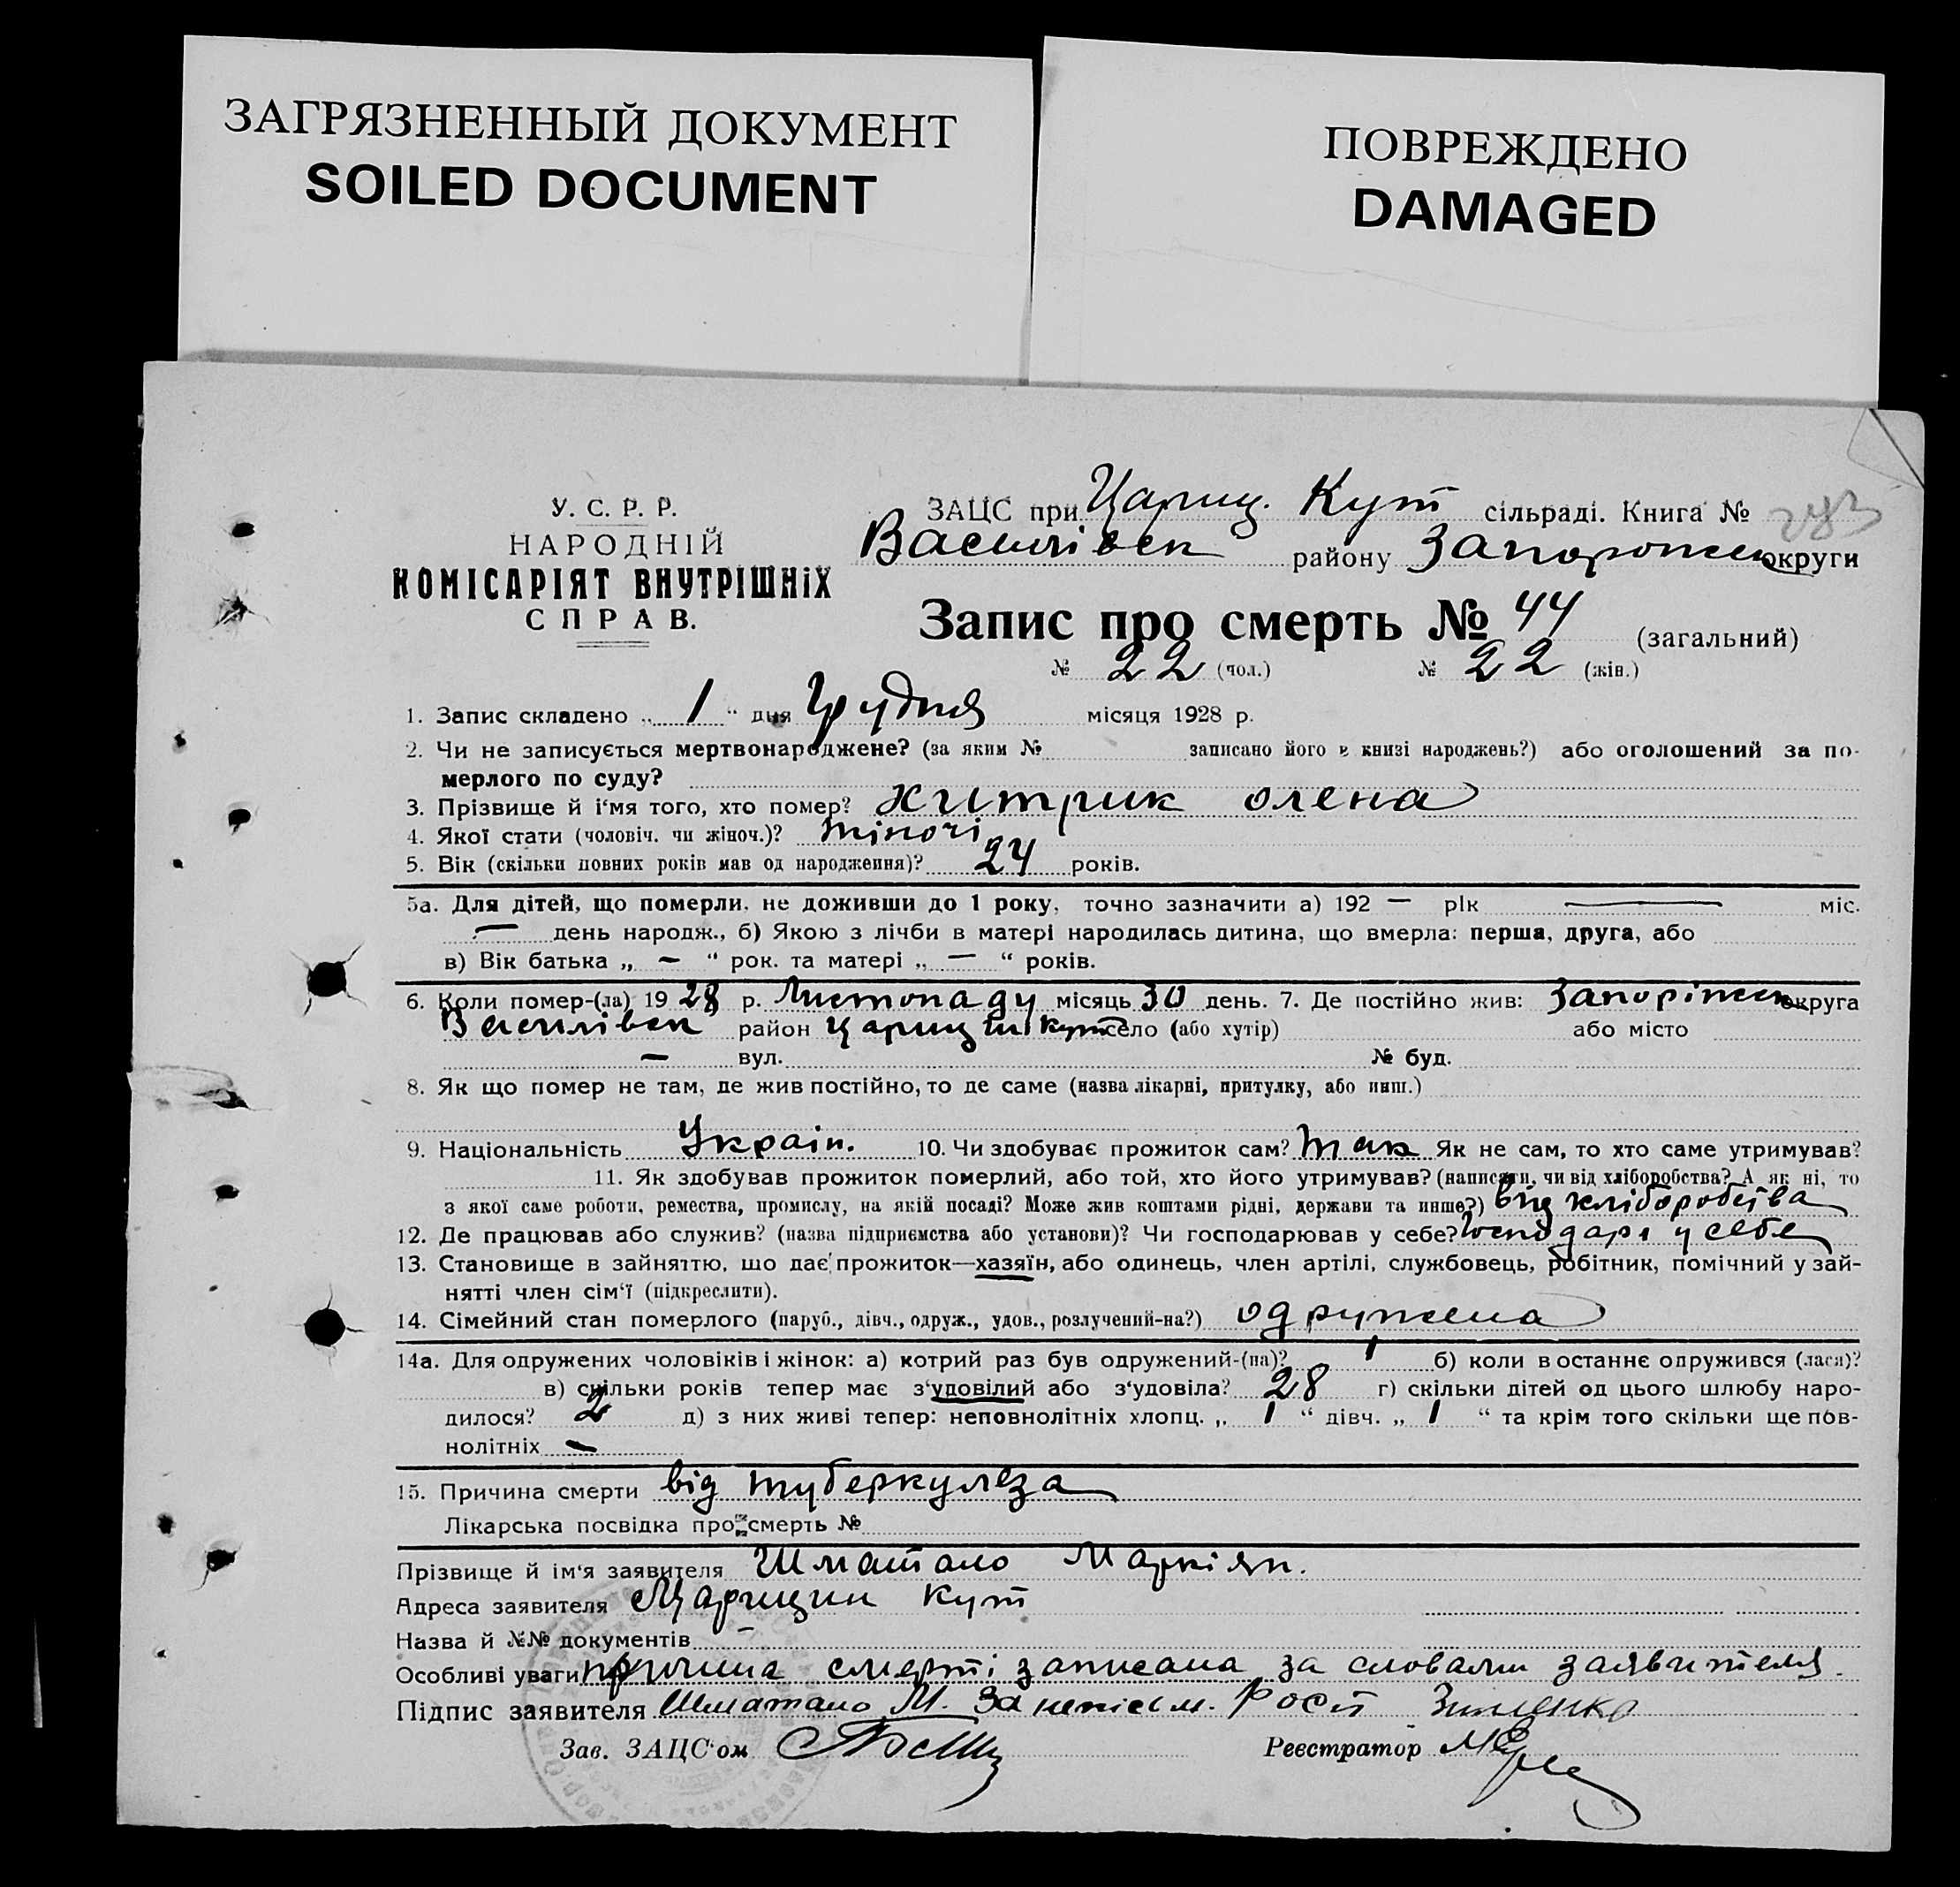 ЗАГРЯЗНЕННЫЙ ДОКУМЕНТ
SOILED DOCUMENT
ПОВРЕЖДЕНО
DAMAGED
У. С. Р. Р.
НАРОДНІЙ
КОМІСАРІЯТ ВНУТРІШНІХ
СПРАВ.
ЗАЦС при Цариц. Кут сільраді. Книга №
Василівск району Запорожск округи
Запис про смерть № 44 (загальний)
№ 22 (чол.) № 22 (жін.)
1. Запис складено „ 1 “ дня Грудня місяця 1928 р.
2. Чи не записується мертвонароджене? (за яким № записано його в книзі народжень?) або оголошений за по-
мерлого по суду?
3. Прізвище й і‘мя того, хто помер? Хитрик Олена
4. Якої стати (чоловіч. чи жіноч.)? жіночі
5. Вік (скільки повних років мав од народження)? 24 років.
5а. Для дітей, що померли, не доживши до 1 року, точно зазначити а) 192 — рік — міс.
— день народж., б) Якою з лічби в матері народилась дитина, що вмерла: перша, друга, або
в) Вік батька „ — “ рок. та матері „ — “ років.
6. Коли помер-(ла) 19 28 р. Листопаду місяць 30 день. 7. Де постійно жив: Запоріжск округа
Василівск район Царицин Кут село (або хутір) або місто
— вул. № буд.
8. Як що помер не там, де жив постійно, то де саме (назва лікарні, притулку, або инш.)
9. Національність Україн. 10. Чи здобуває прожиток сам? Так Як не сам, то хто саме утримував?
11. Як здобував прожиток померлий, або той, хто його утримував? (написати, чи від хліборобства? А як ні, то
з якої саме роботи, ремества, промислу, на якій посаді? Може жив коштами рідні, держави та инше?) від хліборобства
12. Де працював або служив? (назва підприємства або установи)? Чи господарював у себе? Господарі у себе
13. Становище в зайняттю, що дає прожиток—хазяїн, або одинець, член артілі, службовець, робітник, помічний у зай-
нятті член сім‘ї (підкреслити).
14. Сімейний стан померлого (паруб., дівч., одруж., удов., розлучений-на?) одружена
14а. Для одружених чоловіків і жінок: а) котрий раз був одружений-(на)? 1 б) коли в останнє одружився (лася)?
в) скільки років тепер має з‘удовілий або з‘удовіла? 28 г) скільки дітей од цього шлюбу наро-
дилося? 2 д) з них живі тепер: неповнолітніх хлопц. „ 1 “ дівч. „ 1 “ та крім того скільки ще пов-
нолітніх —
15. Причина смерти від туберкулёза
Лікарська посвідка про смерть №
Прізвище й ім‘я заявителя Шматало Маркіян.
Адреса заявителя Царицин Кут
Назва й №№ документів —
Особливі уваги причина смерті записана за словами заявителя.
Підпис заявителя Шматало М. За неписьм. Рост Зименко
Зав. ЗАЦС‘ом
Реєстратор